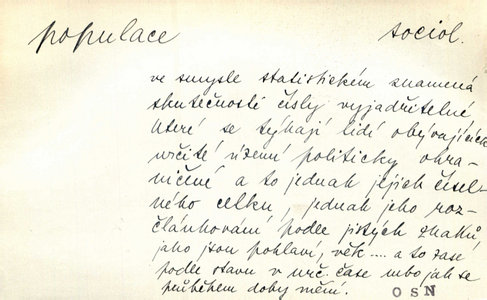 populace sociol.
ve smysle statistickém znamená
skutečnosti čísly vyjadřitelné
které se týkají lidí obývajících
určité území politicky ohra-
ničené a to jednak jejich čísel-
ného celku, jednak jeho roz-
článkování podle jistých znaků
jako jsou pohlaví, věk .... a to zase
podle stavu v urč. čase nebo jak se
průběhem doby mění.
OSN